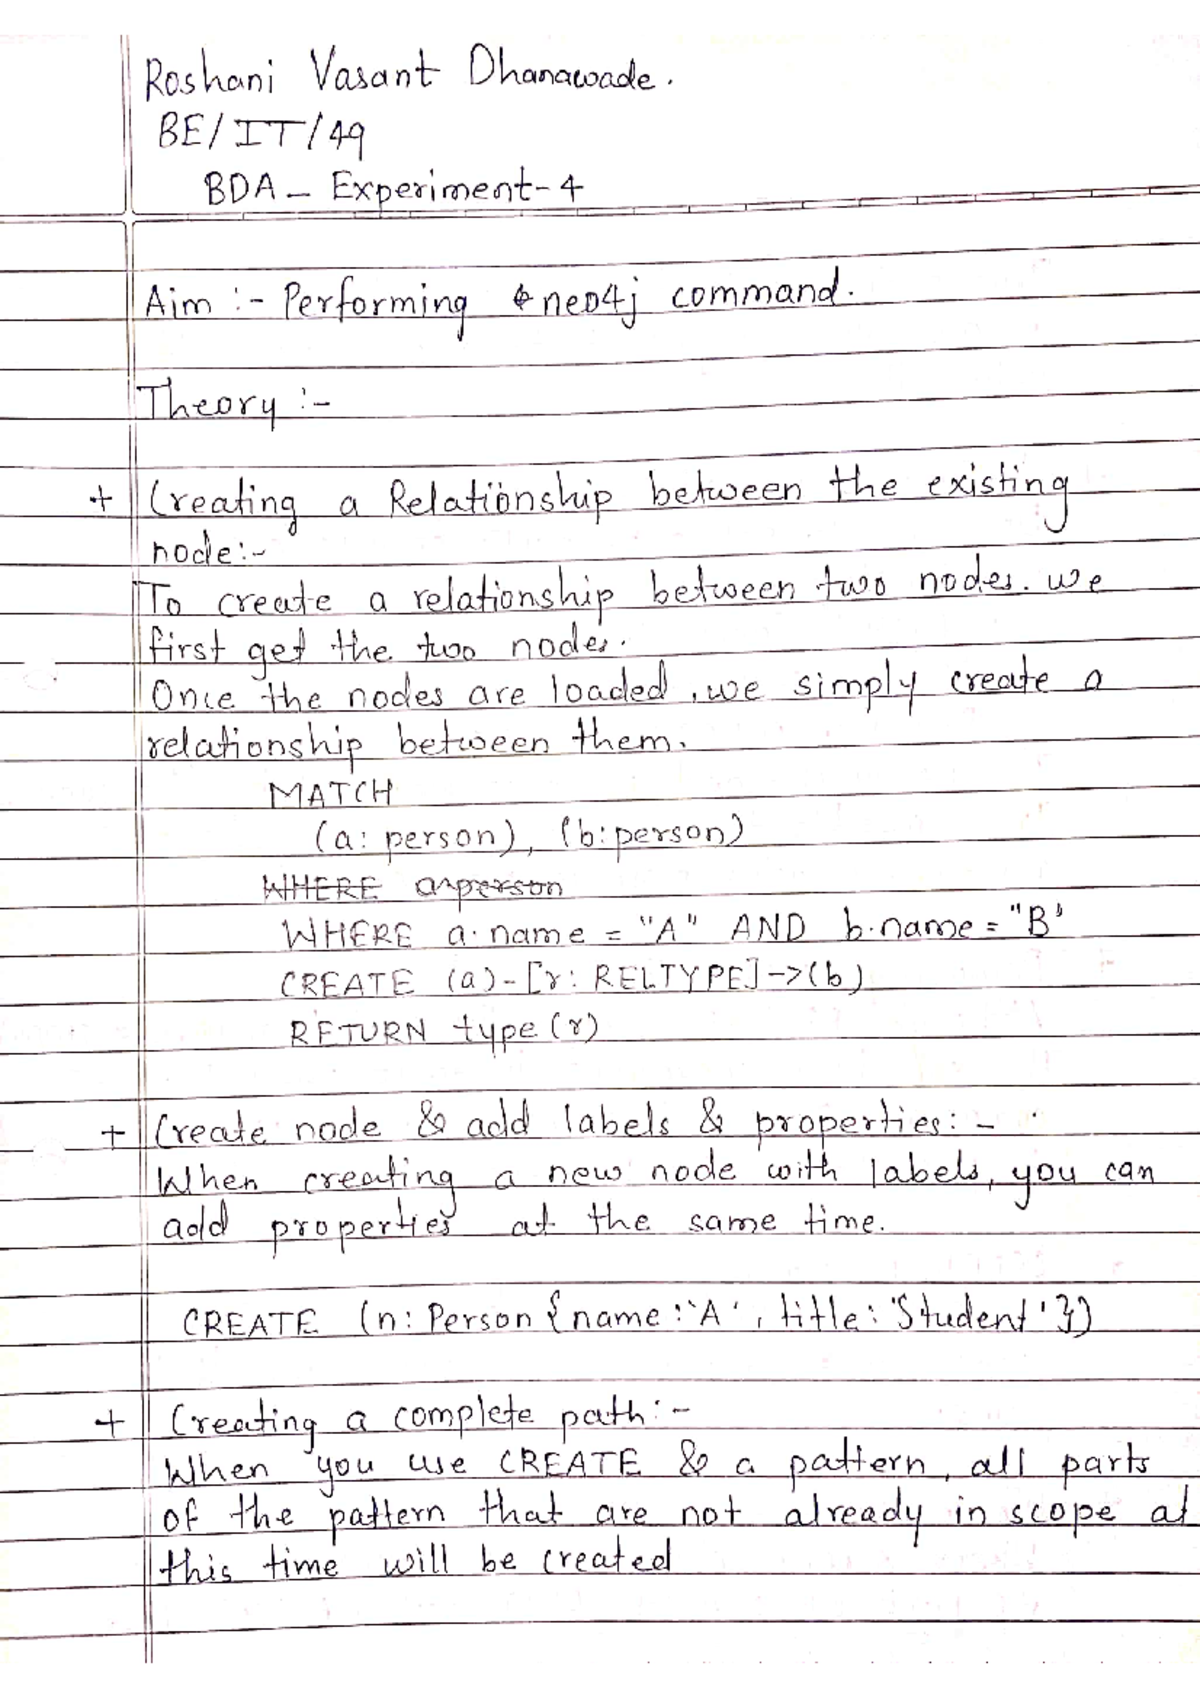 Roshani Vasant Dhanawade.
BE/IT/49
BDA - Experiment-4
Aim :- Performing neo4j command.
Theory :-
+ Creating a Relationship between the existing
node:-
To create a relationship between two nodes. we
first get the two nodes.
Once the nodes are loaded, we simply create a
relationship between them.
MATCH
(a: person), (b:person)
WHERE a.person
WHERE a.name = "A" AND b.name = "B'
CREATE (a)-[r: RELTYPE]->(b)
RETURN type(r)
+ Create node & add labels & properties: -
When creating a new node with labels, you can
add properties at the same time.
CREATE (n: Person {name:'A', title: 'Student'})
+ Creating a complete path: -
When you use CREATE & a pattern, all parts
of the pattern that are not already in scope at
this time will be created